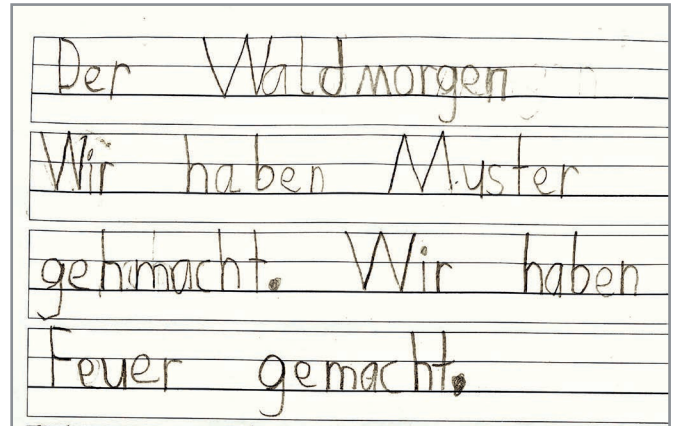 Der Waldmorgen
Wir haben Muster
gehmacht. Wir haben
Feuer gemacht.